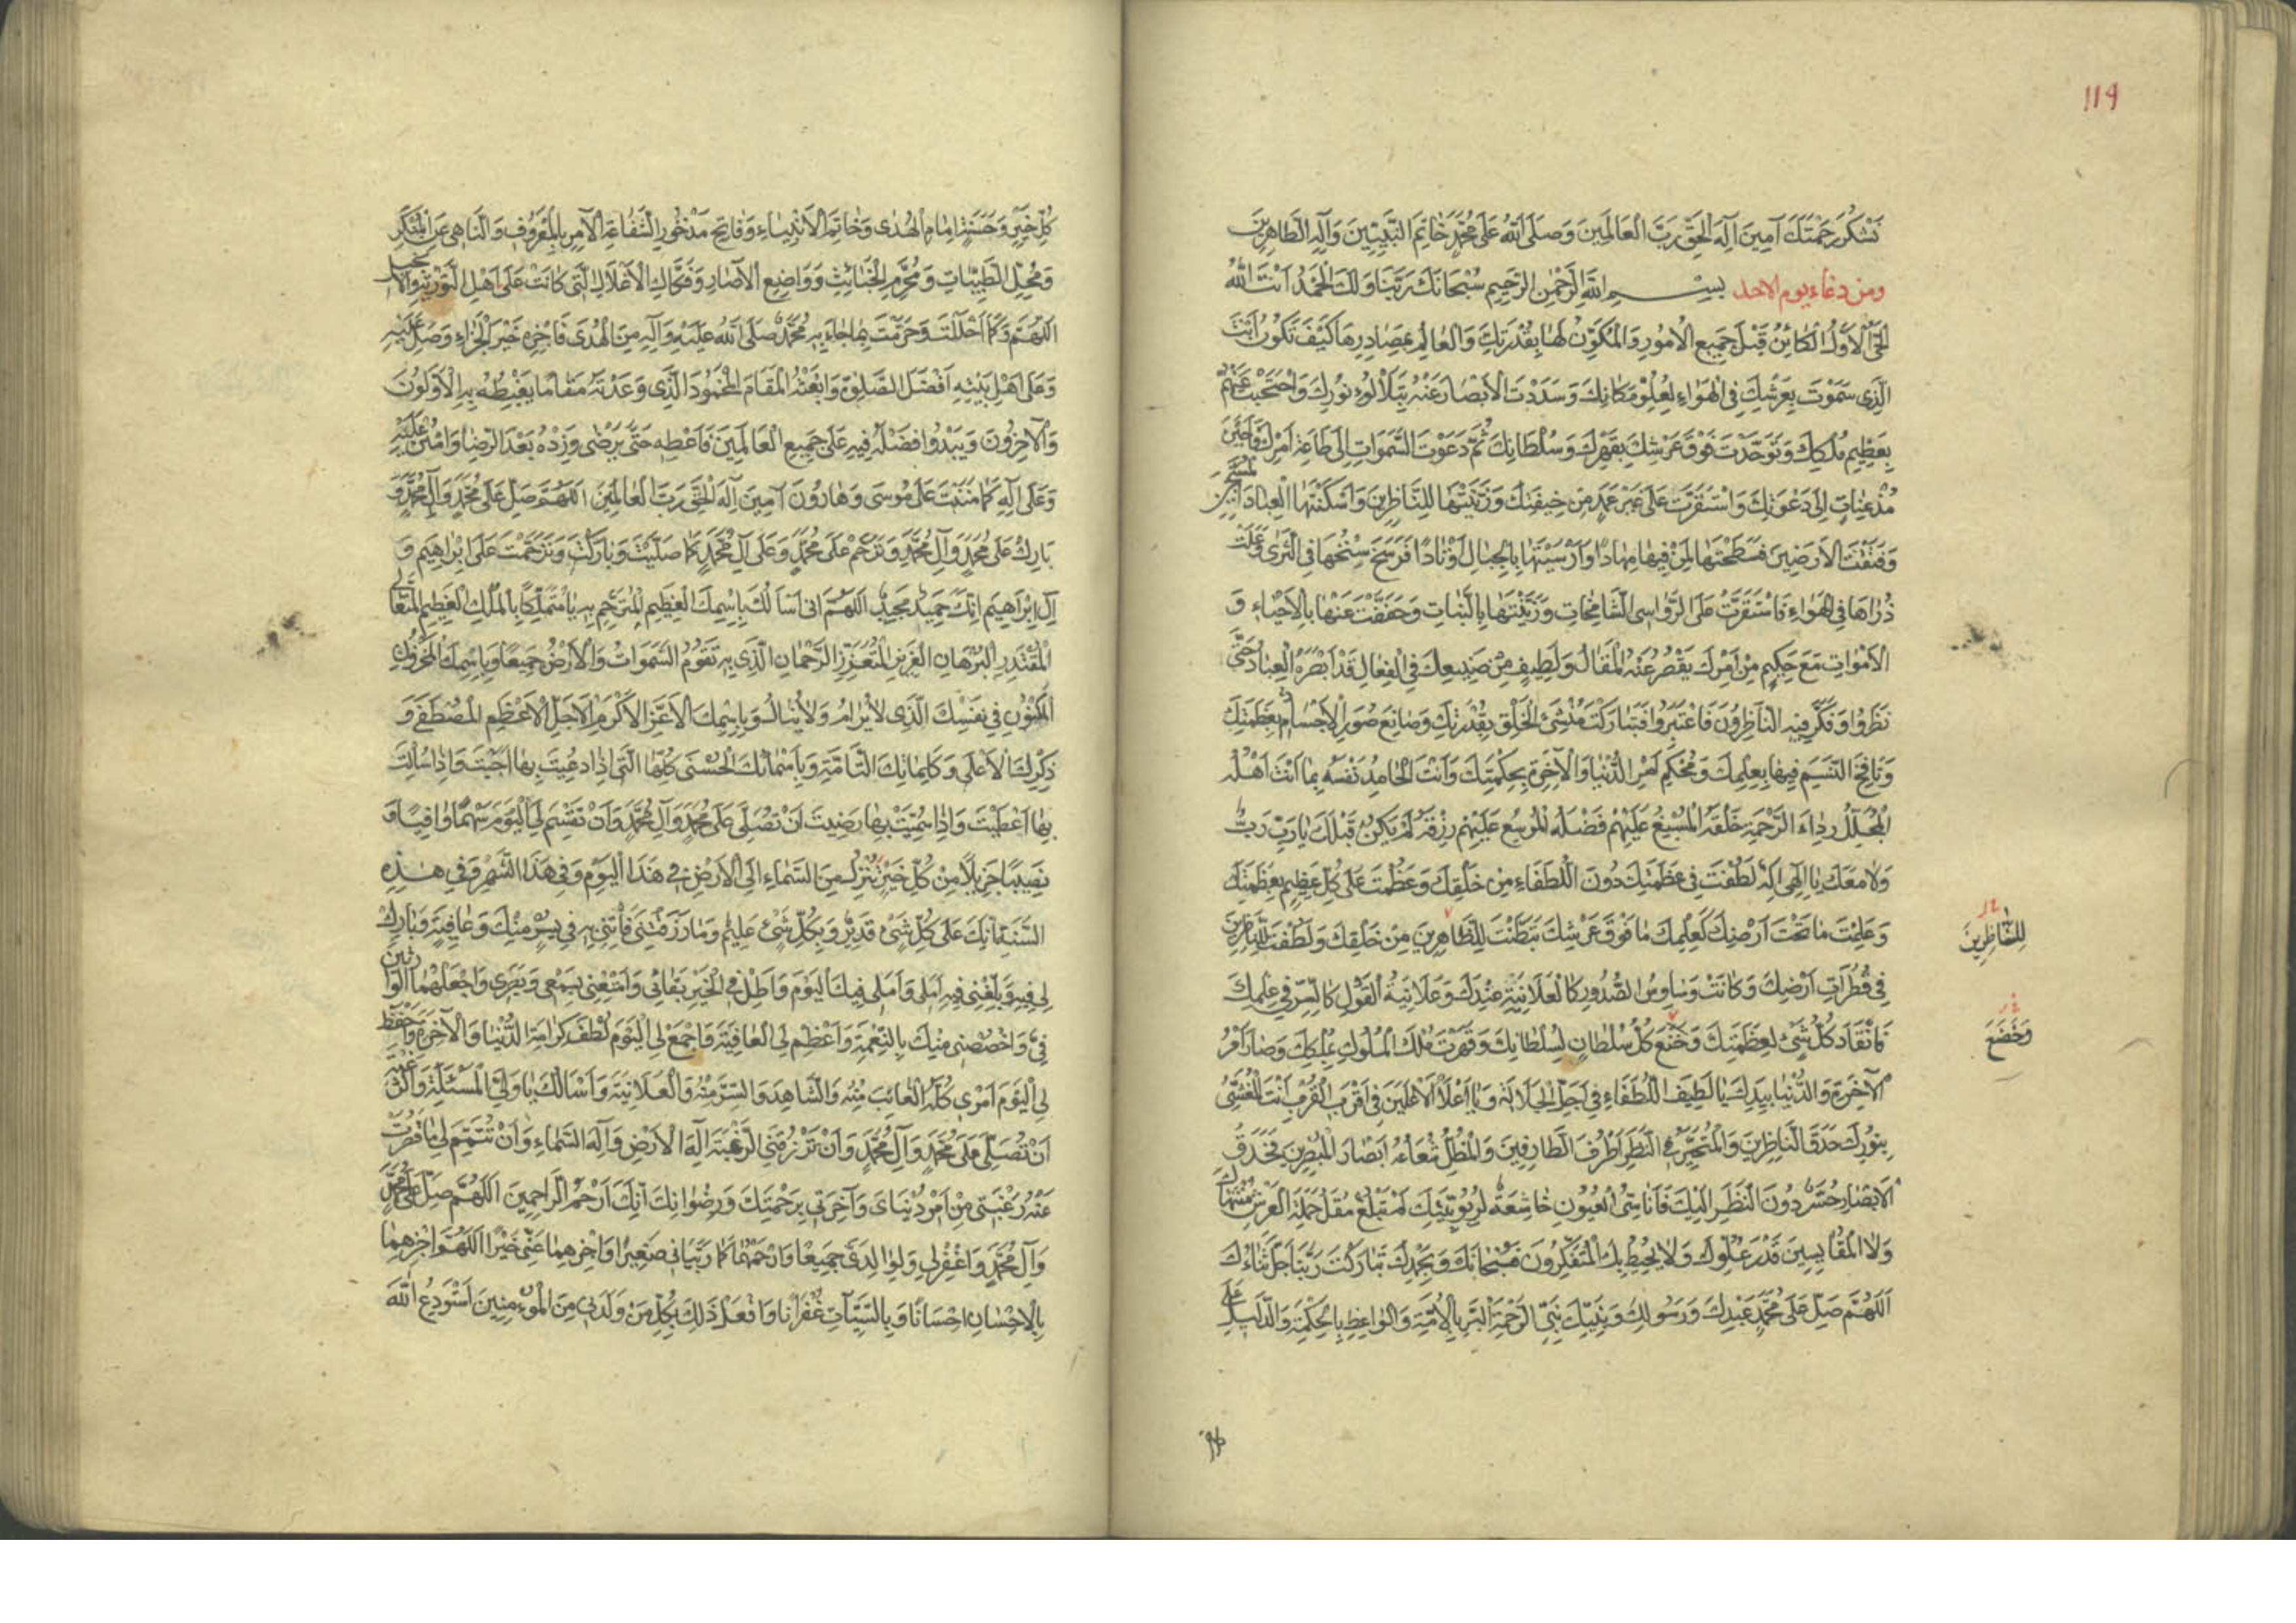 119
نَشْكُرَ رَحْمَتَكَ آمِينَ اِلٰهَ الْحَقِّ رَبَّ الْعَالَمِينَ وَصَلَّى اللّٰهُ عَلَى مُحَمَّدٍ خَاتَمِ النَّبِيِّينَ وَآلِهِ الطَّاهِرِينَ
ومن دعاء يوم الاحد بِسْمِ اللّٰهِ الرَّحْمٰنِ الرَّحِيمِ سُبْحَانَكَ رَبَّنَا وَلَكَ الْحَمْدُ اَنْتَ اللّٰهُ
الْحَيُّ الْاَوَّلُ الْكَائِنُ قَبْلَ جَمِيعِ الْاُمُورِ وَالْمُكَوِّنُ لَهَا بِقُدْرَتِكَ وَالْعَالِمُ بِمَصَادِرِهَا كَيْفَ تَكُونُ اَنْتَ
الَّذِى سَمَوْتَ بِعَرْشِكَ فِى الْهَوَاءِ لِعُلُوِّ مَكَانِكَ وَسَدَدْتَ الْاَبْصَارَ عَنْهُ بِتَلَأْلُؤِ نُورِكَ وَاحْتَجَبْتَ عَنْهُمْ
بِعَظِيمِ مُلْكِكَ وَتَوَحَّدْتَ فَوْقَ عَرْشِكَ بِقَهْرِكَ وَسُلْطَانِكَ ثُمَّ دَعَوْتَ السَّمٰوَاتِ اِلَى طَاعَةِ اَمْرِكَ فَاَجَبْنَ
مُذْعِنَاتٍ اِلَى دَعْوَتِكَ وَاسْتَقَرَّتْ عَلَى غَيْرِ عَمَدٍ مِنْ خِيفَتِكَ وَزَيَّنْتَهَا لِلنَّاظِرِينَ وَاَسْكَنْتَهَا الْعِبَادَ الْمُسَبِّحِينَ
وَفَتَقْتَ الْاَرَضِينَ فَسَطَحْتَهَا لِمَنْ فِيهَا مِهَادًا وَاَرْسَيْتَهَا بِالْجِبَالِ اَوْتَادًا فَرَسَخَ سِنْخُهَا فِى الثَّرَى وَعَلَتْ
ذُرَاهَا فِى الْهَوَاءِ فَاسْتَقَرَّتْ عَلَى الرَّوَاسِى الشَّامِخَاتِ وَزَيَّنْتَهَا بِالنَّبَاتِ وَخَفَّفْتَ عَنْهَا بِالْاَحْيَاءِ وَ
الْاَمْوَاتِ مَعَ حَكِيمٍ مِنْ اَمْرِكَ يَقْصُرُ عَنْهُ الْمَقَالُ وَلَطِيفٍ مِنْ صَنِيعِكَ فِى الْفِعَالِ قَدْ اَبْصَرَهُ الْعِبَادُ حَتَّى
نَظَرُوا وَفَكَّرَ فِيهِ النَّاظِرُونَ فَاعْتَبَرُوا فَتَبَارَكْتَ مُنْشِئَ الْخَلْقِ بِقُدْرَتِكَ وَصَانِعَ صُوَرِ الْاَجْسَامِ بِعَظَمَتِكَ
وَنَافِخَ النَّسَمِ فِيهَا بِعِلْمِكَ وَمُحْكِمَ اَمْرِ الدُّنْيَا وَالْآخِرَةِ بِحِكْمَتِكَ وَاَنْتَ الْحَامِدُ نَفْسَهُ بِمَا اَنْتَ اَهْلُهُ
الْمُجَلِّلُ رِدَاءَ الرَّحْمَةِ خَلْقَهُ الْمُسْبِغُ عَلَيْهِمْ فَضْلَهُ الْمُوسِعُ عَلَيْهِمْ رِزْقَهُ لَمْ يَكُنْ قَبْلَكَ يَا رَبِّ رَبٌّ
وَلَا مَعَكَ يَا اِلٰهِى اِلٰهٌ لَطُفْتَ فِى عَظَمَتِكَ دُونَ اللُّطَفَاءِ مِنْ خَلْقِكَ وَعَظُمْتَ عَلَى كُلِّ عَظِيمٍ بِعَظَمَتِكَ
وَعَلِمْتَ مَا تَحْتَ اَرْضِكَ كَعِلْمِكَ مَا فَوْقَ عَرْشِكَ تَبَطَّنْتَ لِلظَّاهِرِينَ مِنْ خَلْقِكَ وَلَطُفْتَ لِلنَّاظِرِينَ
لِلنَّاظِرِينَ
فِى قُطُرَاتِ اَرْضِكَ وَكَانَتْ وَسَاوِسُ الصُّدُورِ كَالْعَلَانِيَةِ عِنْدَكَ وَعَلَانِيَةُ الْقَوْلِ كَالسِّرِّ فِى عِلْمِكَ
فَانْقَادَ كُلُّ شَىْءٍ لِعَظَمَتِكَ وَخَنَعَ كُلُّ سُلْطَانٍ لِسُلْطَانِكَ وَقَهَرْتَ مُلْكَ الْمُلُوكِ بِمُلْكِكَ وَصَارَ اَمْرُ
وَخَضَعَ
الْآخِرَةِ وَالدُّنْيَا بِيَدِكَ يَا لَطِيفَ اللُّطَفَاءِ فِى اَجَلِّ الْجَلَالَةِ وَيَا اَعْلَا الْاَعْلَيْنَ فِى اَقْرَبِ الْقُرْبِ اَنْتَ الْمُغْشِى
بِنُورِكَ حَدَقَ النَّاظِرِينَ وَالْمُتَحَيَّرُ فِى النَّظَرِ اَطْرُفَ الطَّارِفِينَ وَالْمُظِلُّ شُعَاعُهُ اَبْصَارَ الْمُبْصِرِينَ فَحَدَقُ
الْاَبْصَارِ حُسَّرٌ دُونَ النَّظَرِ اِلَيْكَ فَاَنَاسِىُّ الْعُيُونِ خَاشِعَةٌ لِرُبُوبِيَّتِكَ لَمْ تَبْلُغْ مُقَلُ حَمَلَةِ الْعَرْشِ مُنْتَهَاكَ
وَلَا الْمَقَايِيسِينَ قَدْرَ عُلُوِّكَ وَلَا يُحِيطُ بِكَ الْمُتَفَكِّرُونَ فَسُبْحَانَكَ وَبِحَمْدِكَ تَبَارَكْتَ رَبَّنَا جَلَّ ثَنَاءُكَ
اَللّٰهُمَّ صَلِّ عَلَى مُحَمَّدٍ عَبْدِكَ وَرَسُولِكَ وَنَبِيِّكَ نَبِىِّ الرَّحْمَةِ الْبَرِّ بِالْاُمَّةِ وَالْوَاعِظِ بِالْحِكْمَةِ وَالدَّلِيلِ عَلَى
كُلِّ خَيْرٍ وَحَسَنَةٍ اِمَامِ الْهُدٰى وَخَاتَمِ الْاَنْبِيَاءِ وَفَاتِحِ مَذْخُورِ الشَّفَاعَةِ الْآمِرِ بِالْمَعْرُوفِ وَالنَّاهِى عَنِ الْمُنْكَرِ
وَمُحِلِّ الطَّيِّبَاتِ وَمُحَرِّمِ الْخَبَائِثِ وَوَاضِعِ الْآصَارِ وَفَكَّاكِ الْاَغْلَالِ الَّتِى كَانَتْ عَلَى اَهْلِ التَّوْرٰيةِ وَالْاِنْجِيلِ
اَللّٰهُمَّ وَكَمَا اَحْلَلْتَ وَحَرَّمْتَ بِمَا جَاءَ بِهِ مُحَمَّدٌ صَلَّى اللّٰهُ عَلَيْهِ وَآلِهِ مِنَ الْهُدٰى فَاجْزِهِ خَيْرَ الْجَزَاءِ وَصَلِّ عَلَيْهِ
وَعَلَى اَهْلِ بَيْتِهِ اَفْضَلَ الصَّلٰوةِ وَابْعَثْهُ الْمَقَامَ الْمَحْمُودَ الَّذِى وَعَدْتَهُ مَقَامًا يَغْبِطُهُ بِهِ الْاَوَّلُونَ
وَالْآخِرُونَ وَيَبْدُو فَضْلُهُ فِيهِ عَلَى جَمِيعِ الْعَالَمِينَ فَاَعْطِهِ حَتَّى يَرْضٰى وَزِدْهُ بَعْدَ الرِّضَا وَامْنُنْ عَلَيْهِ
وَعَلَى آلِهِ كَمَا مَنَنْتَ عَلَى مُوسَى وَهَارُونَ آمِينَ اِلٰهَ الْحَقِّ رَبَّ الْعَالَمِينَ اَللّٰهُمَّ صَلِّ عَلَى مُحَمَّدٍ وَآلِ مُحَمَّدٍ وَ
بَارِكْ عَلَى مُحَمَّدٍ وَآلِ مُحَمَّدٍ وَتَرَحَّمْ عَلَى مُحَمَّدٍ وَعَلَى آلِ مُحَمَّدٍ كَمَا صَلَّيْتَ وَبَارَكْتَ وَتَرَحَّمْتَ عَلَى اِبْرَاهِيمَ وَ
آلِ اِبْرَاهِيمَ اِنَّكَ حَمِيدٌ مَجِيدٌ اَللّٰهُمَّ اِنِّى اَسْأَلُكَ بِاسْمِكَ الْعَظِيمِ الْمُتَرَحَّمِ بِهِ يَا مُتَمَلِّكًا بِالْمُلْكِ الْعَظِيمِ الْمُتَعَالِى
الْمُقْتَدِرِ الْبُرْهَانِ الْعَزِيزِ الْمُتَعَزِّزِ الرَّحْمَانِ الَّذِى بِهِ تَقُومُ السَّمٰوَاتُ وَالْاَرْضُ جَمِيعًا وَبِاسْمِكَ الْمَخْزُونِ
الْمَكْنُونِ فِى نَفْسِكَ الَّذِى لَا يُرَامُ وَلَا يُنَالُ وَبِاسْمِكَ الْاَعَزِّ الْاَكْرَمِ الْاَجَلِّ الْاَعْظَمِ الْمُصْطَفَى وَ
ذِكْرِكَ الْاَعْلٰى وَكَلِمَاتِكَ التَّامَّةِ وَبِاَسْمَائِكَ الْحُسْنَى كُلِّهَا الَّتِى اِذَا دُعِيتَ بِهَا اَجَبْتَ وَاِذَا سُئِلْتَ
بِهَا اَعْطَيْتَ وَاِذَا سُمِّيتَ بِهَا رَضِيتَ اَنْ تُصَلِّىَ عَلَى مُحَمَّدٍ وَآلِ مُحَمَّدٍ وَاَنْ تَقْسِمَ لِىَ الْيَوْمَ سَهْمًا وَافِيًا وَ
نَصِيبًا جَزِيلًا مِنْ كُلِّ خَيْرٍ يَنْزِلُ مِنَ السَّمَاءِ اِلَى الْاَرْضِ فِى هَذَا الْيَوْمِ وَفِى هَذَا الشَّهْرِ وَفِى هٰذِهِ
السَّنَةِ اِنَّكَ عَلَى كُلِّ شَىْءٍ قَدِيرٌ وَبِكُلِّ شَىْءٍ عَلِيمٌ وَمَا رَزَقْتَنِى فَأْتِنِى بِهِ فِى يُسْرٍ مِنْكَ وَعَافِيَةٍ وَبَارِكْ
لِى فِيهِ وَبَلِّغْنِى فِيهِ اَمَلِى وَاَمَلِى فِيكَ الْيَوْمَ وَاَطِلْ فِى الْخَيْرِ بَقَائِى وَاَمْتِعْنِى بِسَمْعِى وَبَصَرِى وَاجْعَلْهُمَا الْوَارِثَيْنِ
مِنِّى وَاخْصُصْنِى مِنْكَ بِالنِّعْمَةِ وَاَعْظِمْ لِىَ الْعَافِيَةَ وَاجْمَعْ لِىَ الْيَوْمَ لُطْفَ كَرَامَةِ الدُّنْيَا وَالْآخِرَةِ وَاحْفَظْ
لِىَ الْيَوْمَ اُمُورِى كُلَّهَا الْغَائِبَ مِنْهُ وَالشَّاهِدَ وَالسِّرَّ مِنْهُ وَالْعَلَانِيَةَ وَاَسْأَلُكَ يَا وَلِىَّ الْمَسْئَلَةِ وَالرَّغْبَةِ
اَنْ تُصَلِّىَ عَلَى مُحَمَّدٍ وَآلِ مُحَمَّدٍ وَاَنْ تَرْزُقَنِى الرَّغْبَةَ اِلٰهَ الْاَرْضِ وَاِلٰهَ السَّمَاءِ وَاَنْ تُتَمِّمَ لِى مَا قَصُرَتْ
عَنْهُ رَغْبَتِى مِنْ اَمْرِ دُنْيَاىَ وَآخِرَتِى بِرَحْمَتِكَ وَرِضْوَانِكَ اِنَّكَ اَرْحَمُ الرَّاحِمِينَ اَللّٰهُمَّ صَلِّ عَلَى مُحَمَّدٍ
وَآلِ مُحَمَّدٍ وَاغْفِرْ لِى وَلِوَالِدَىَّ جَمِيعًا وَارْحَمْهُمَا كَمَا رَبَّيَانِى صَغِيرًا وَاجْزِهِمَا عَنِّى خَيْرًا اَللّٰهُمَّ اجْزِهِمَا
بِالْاِحْسَانِ اِحْسَانًا وَبِالسَّيِّآتِ غُفْرَانًا وَافْعَلْ ذٰلِكَ بِكُلِّ مَنْ وَلَدَنِى مِنَ الْمُؤْمِنِينَ اَسْتَوْدِعُ اللّٰهَ